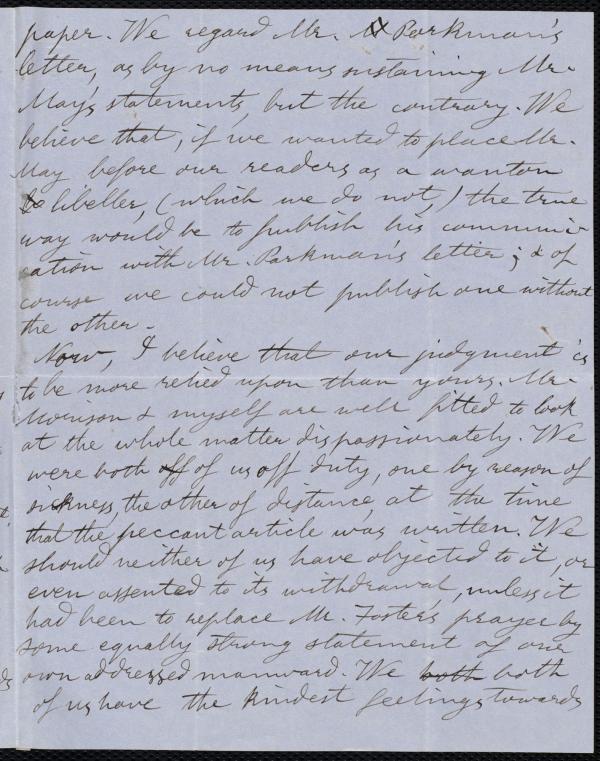 paper. We regard Mr. Parkman's
letter, as by no means sustaining Mr.
May's statements, but the contrary. We
believe that, if we wanted to place Mr.
May before our readers as a wanton
libeller, (which we do not,) the true
way would be to publish his communi-
cation with Mr. Parkman's letter; & of
course we could not publish one without
the other.
Now, I believe that our judgment is
to be more relied upon than yours. Mr.
Morison & myself are well fitted to look
at the whole matter dispassionately. We
were both off of us off duty, one by reason of
sickness, the other of distance, at the time
that the peccant article was written. We
should neither of us have objected to it, or
even assented to its withdrawal, unless it
had been to replace Mr. Foster's prayer by
some equally strong statement of our
own addressed manward. We both both
of us have the kindest feelings towards